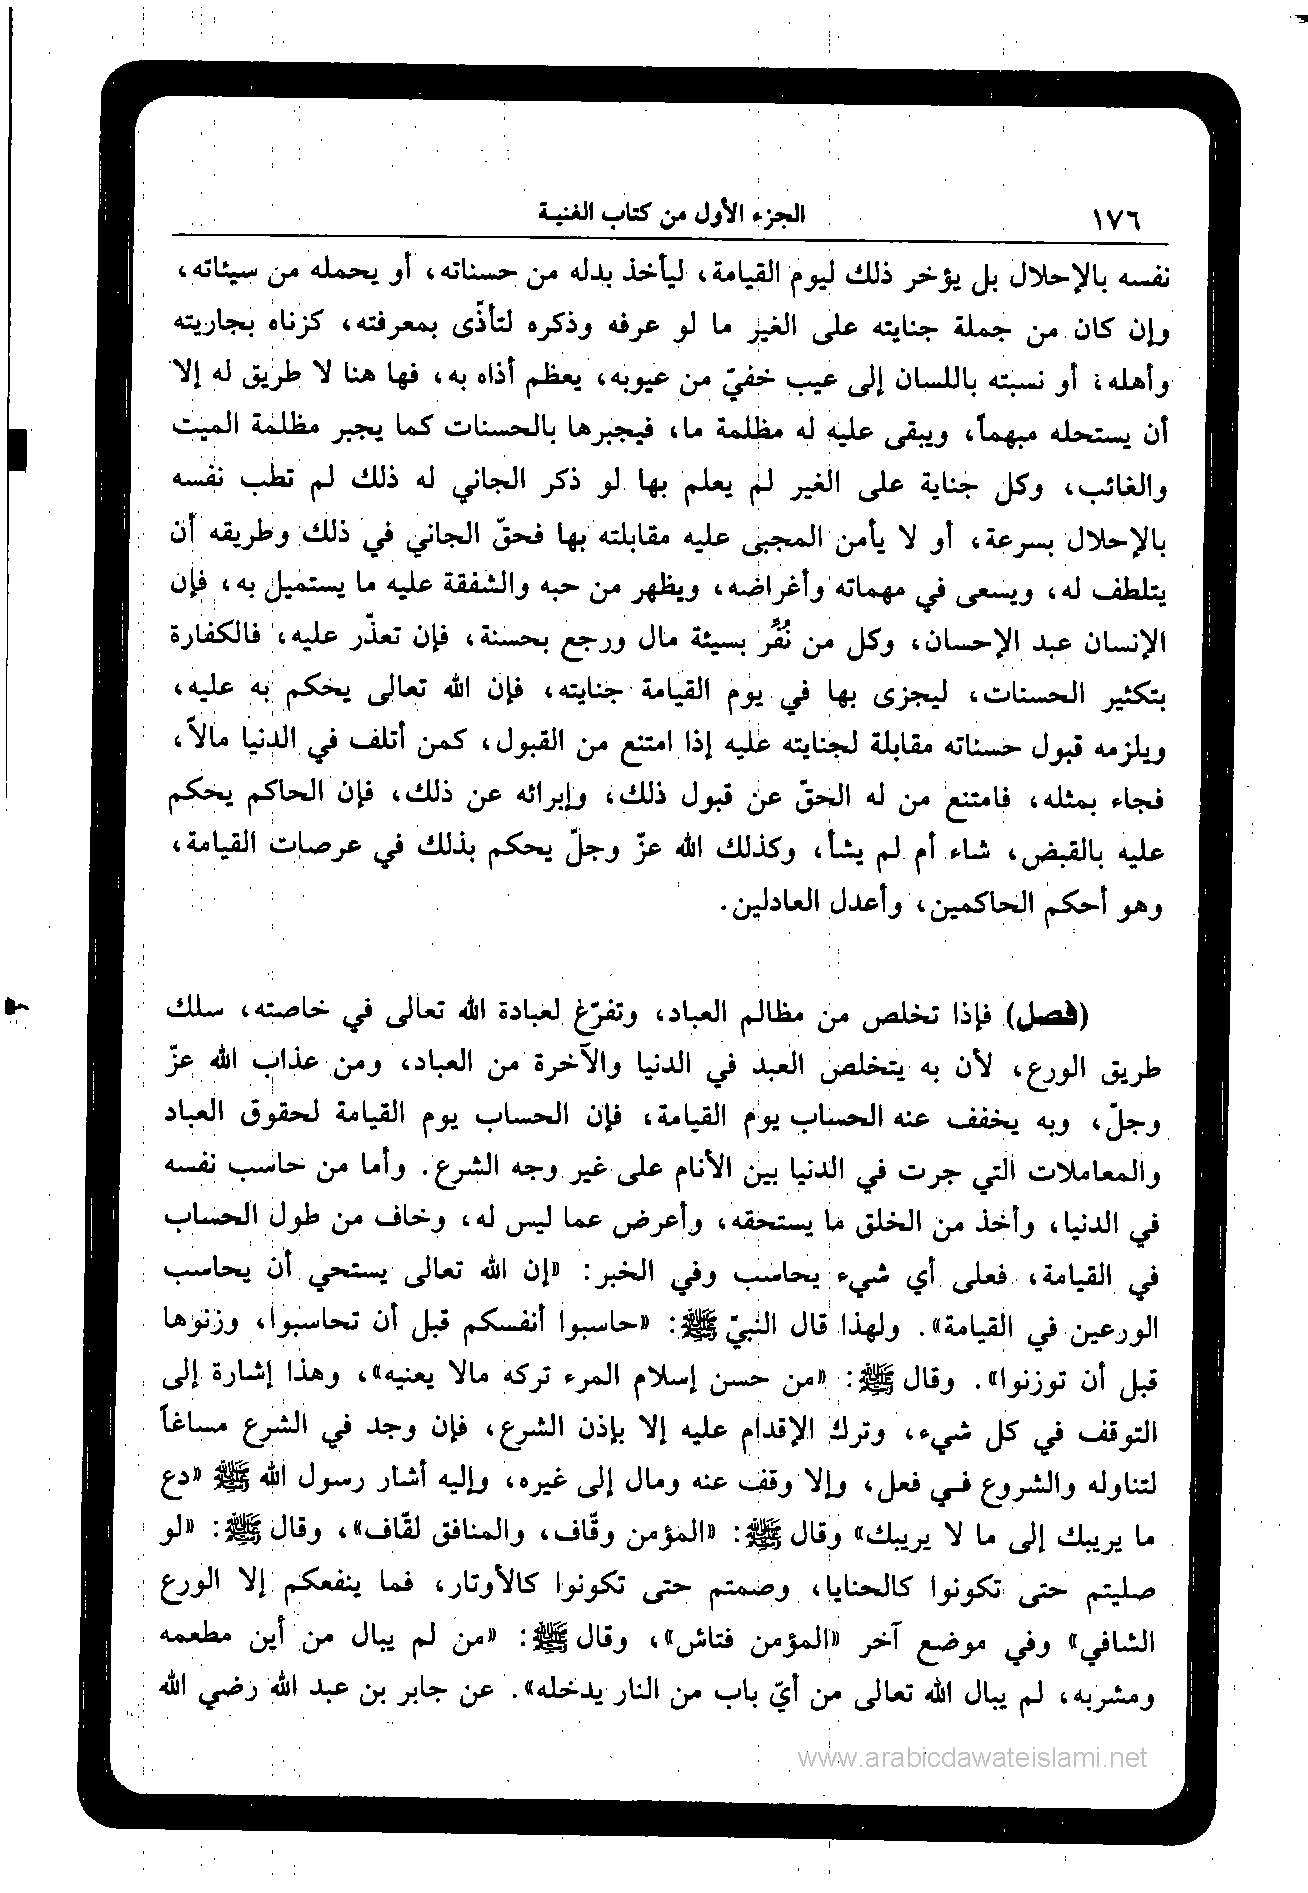 ١٧٦ الجزء الأول من كتاب الغنية
نفسه بالإحلال بل يؤخر ذلك ليوم القيامة، ليأخذ بدله من حسناته، أو يحمله من سيئاته،
وإن كان من جملة جنايته على الغير ما لو عرفه وذكره لتأذّى بمعرفته، كزناه بجاريته
وأهله، أو نسبته باللسان إلى عيب خفيّ من عيوبه، يعظم أذاه به، فها هنا لا طريق له إلا
أن يستحله مبهماً، ويبقى عليه له مظلمة ما، فيجبرها بالحسنات كما يجبر مظلمة الميت
والغائب، وكل جناية على الغير لم يعلم بها لو ذكر الجاني له ذلك لم تطب نفسه
بالإحلال بسرعة، أو لا يأمن المجبى عليه مقابلته بها فحقّ الجاني في ذلك وطريقه أن
يتلطف له، ويسعى في مهماته وأغراضه، ويظهر من حبه والشفقة عليه ما يستميل به، فإن
الإنسان عبد الإحسان، وكل من نُفِّر بسيئة مال ورجع بحسنة، فإن تعذّر عليه، فالكفارة
بتكثير الحسنات، ليجزى بها في يوم القيامة جنايته، فإن الله تعالى يحكم به عليه،
ويلزمه قبول حسناته مقابلة لجنايته عليه إذا امتنع من القبول، كمن أتلف في الدنيا مالاً،
فجاء بمثله، فامتنع من له الحقّ عن قبول ذلك، وإبرائه عن ذلك، فإن الحاكم يحكم
عليه بالقبض، شاء أم لم يشأ، وكذلك الله عزّ وجلّ يحكم بذلك في عرصات القيامة،
وهو أحكم الحاكمين، وأعدل العادلين.
(فصل) فإذا تخلص من مظالم العباد، وتفرّغ لعبادة الله تعالى في خاصته، سلك
طريق الورع، لأن به يتخلص العبد في الدنيا والآخرة من العباد، ومن عذاب الله عزّ
وجلّ، وبه يخفف عنه الحساب يوم القيامة، فإن الحساب يوم القيامة لحقوق العباد
والمعاملات التي جرت في الدنيا بين الأنام على غير وجه الشرع. وأما من حاسب نفسه
في الدنيا، وأخذ من الخلق ما يستحقه، وأعرض عما ليس له، وخاف من طول الحساب
في القيامة، فعلى أي شيء يحاسب وفي الخبر: «إن الله تعالى يستحي أن يحاسب
الورعين في القيامة». ولهذا قال النبيّ ﷺ: «حاسبوا أنفسكم قبل أن تحاسبوا، وزنوها
قبل أن توزنوا». وقال ﷺ: «من حسن إسلام المرء تركه مالا يعنيه»، وهذا إشارة إلى
التوقف في كل شيء، وترك الإقدام عليه إلا بإذن الشرع، فإن وجد في الشرع مساغاً
لتناوله والشروع في فعل، وإلا وقف عنه ومال إلى غيره، وإليه أشار رسول الله ﷺ «دع
ما يريبك إلى ما لا يريبك» وقال ﷺ: «المؤمن وقّاف، والمنافق لقّاف»، وقال ﷺ: «لو
صليتم حتى تكونوا كالحنايا، وصمتم حتى تكونوا كالأوتار، فما ينفعكم إلا الورع
الشافي» وفي موضع آخر «المؤمن فتاش»، وقال ﷺ: «من لم يبال من أين مطعمه
ومشربه، لم يبال الله تعالى من أيّ باب من النار يدخله». عن جابر بن عبد الله رضي الله
www.arabicdawateislami.net